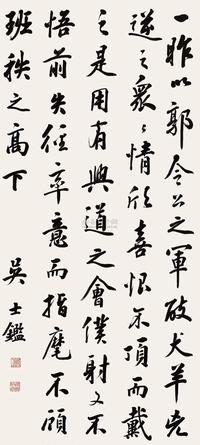 一昨以郭令公之軍破犬羊兇
逆之衆〻情欣喜恨不頂而戴
之是用有興道之會僕射又不
悟前失徑率意而指麾不顧
班秩之高下 吳士鑑